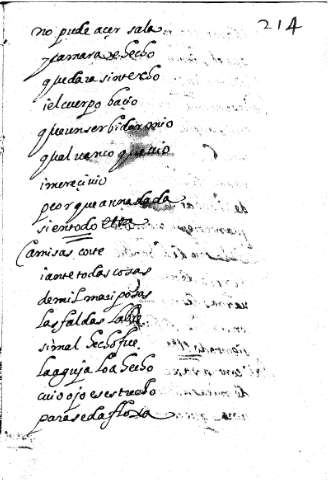 214
no pude açer sala
y camara he hecho
quedara sin techo
i el cuerpo baçio
que un serbidor mio
qual banco
i mereçiuio
peor que a nada
si en todo
Camisas corte
i ante todas cosas
de mil mariposas
las faldas
si mal hecho fue
la aguja lo a hecho
cuio ojo es estrecho
para seda floxa